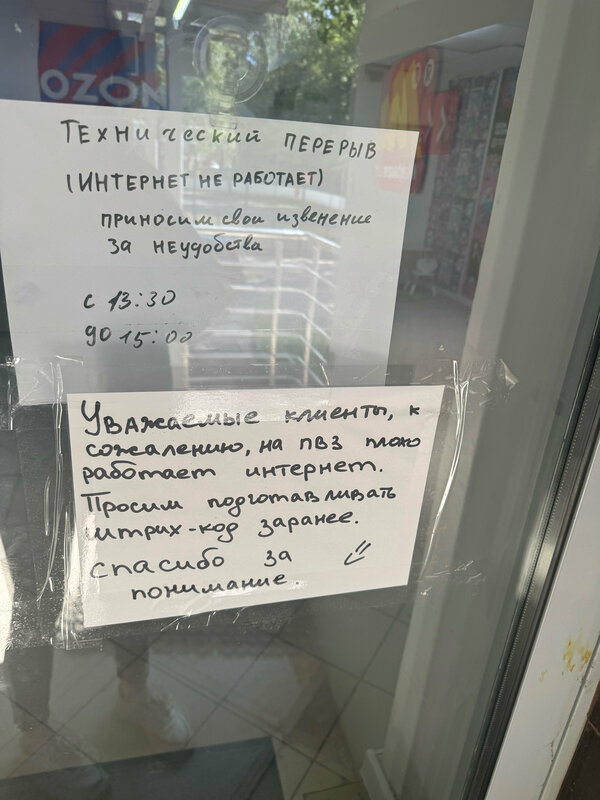 OZON
Технический ПЕРЕРЫВ
(ИНТЕРНЕТ НЕ РАБОТАЕТ)
приносим свои извенение
за неудобства
с 13:30
до 15:00
Уважаемые клиенты, к
сожалению, на ПВЗ плохо
работает интернет.
Просим подготавливать
штрих-код заранее.
спасибо за
понимание.